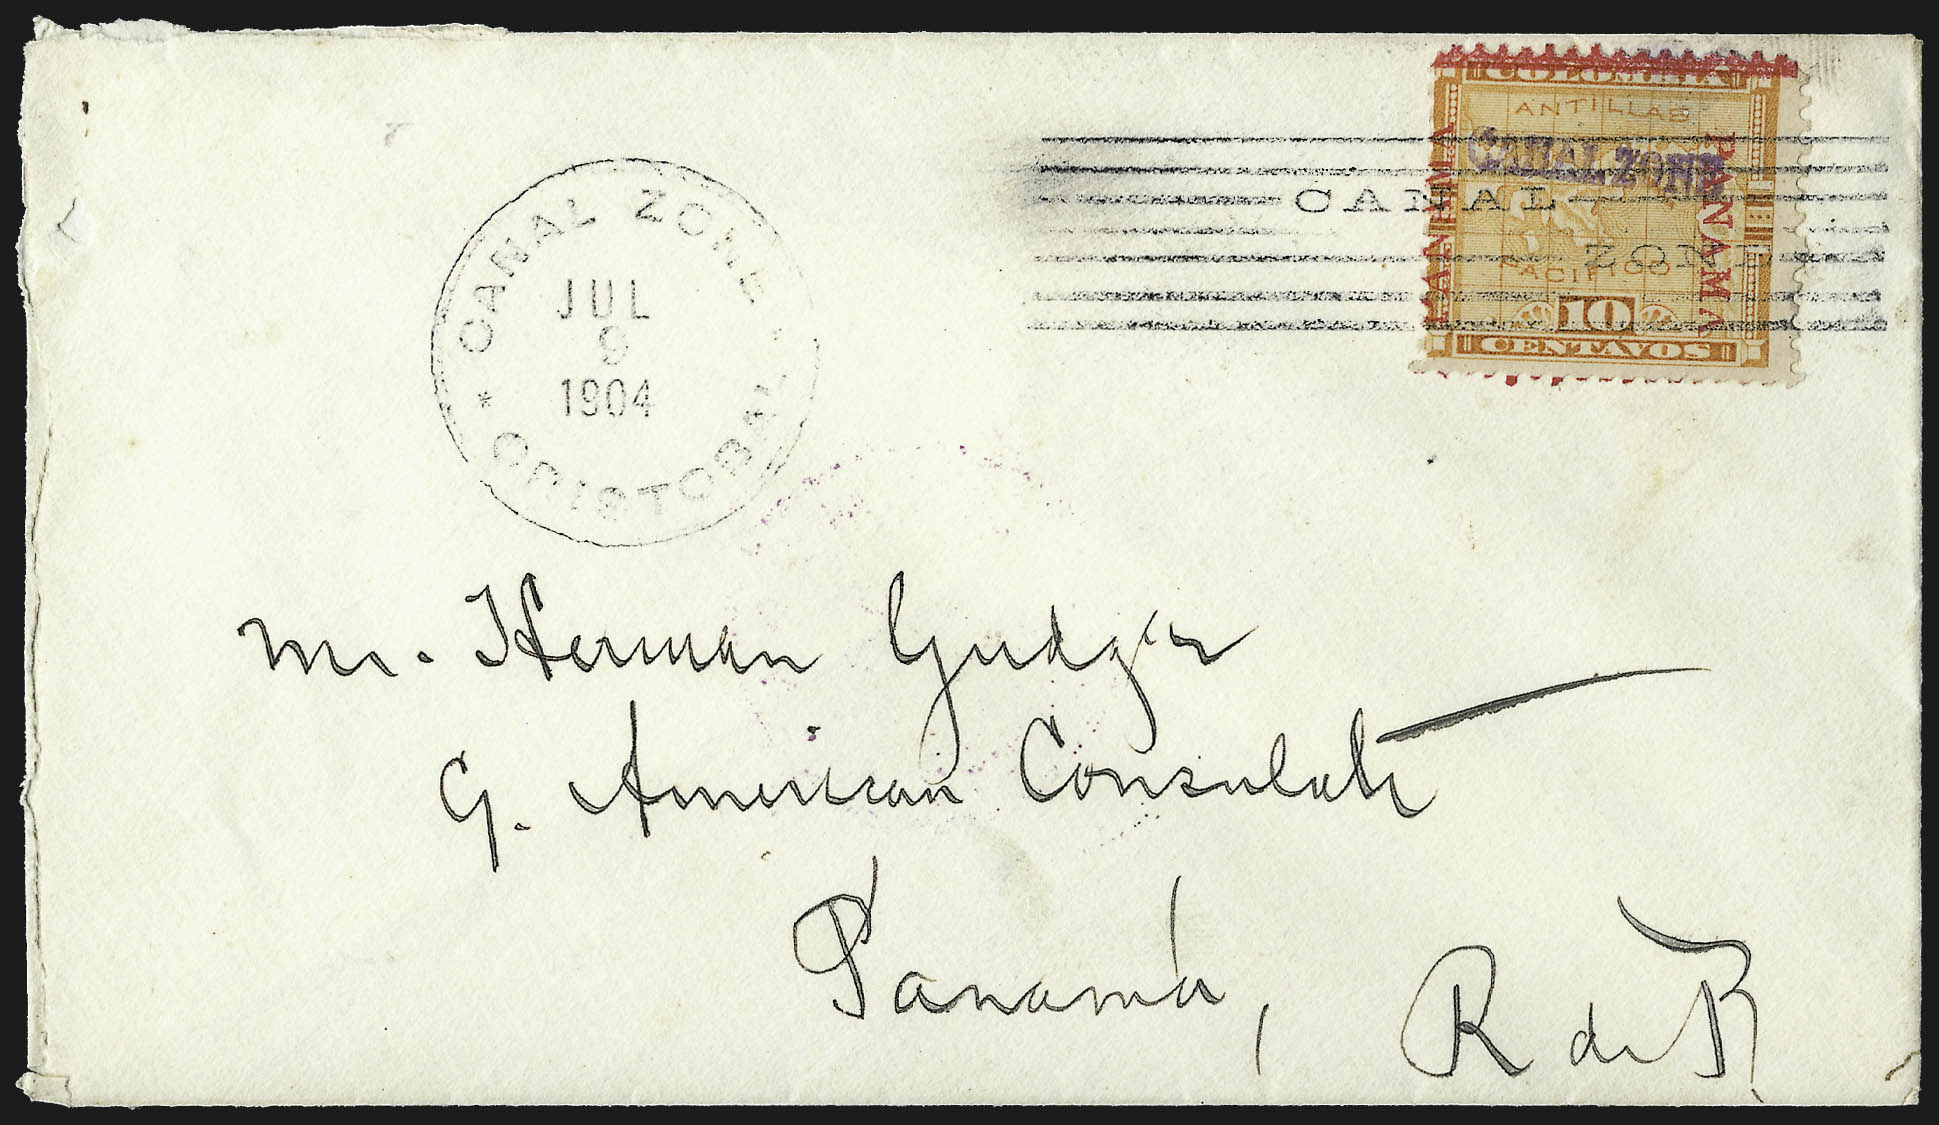 CANAL ZONE
JUL
9
1904
* CRISTOBAL
COLOMBIA
ANTILLAS
CANAL ZONE
PANAMA
PANAMA
CANAL
ZONE
PACIFICO
10
CENTAVOS
Mr. Herman Gudger
American Consulate
Panamá, R de P